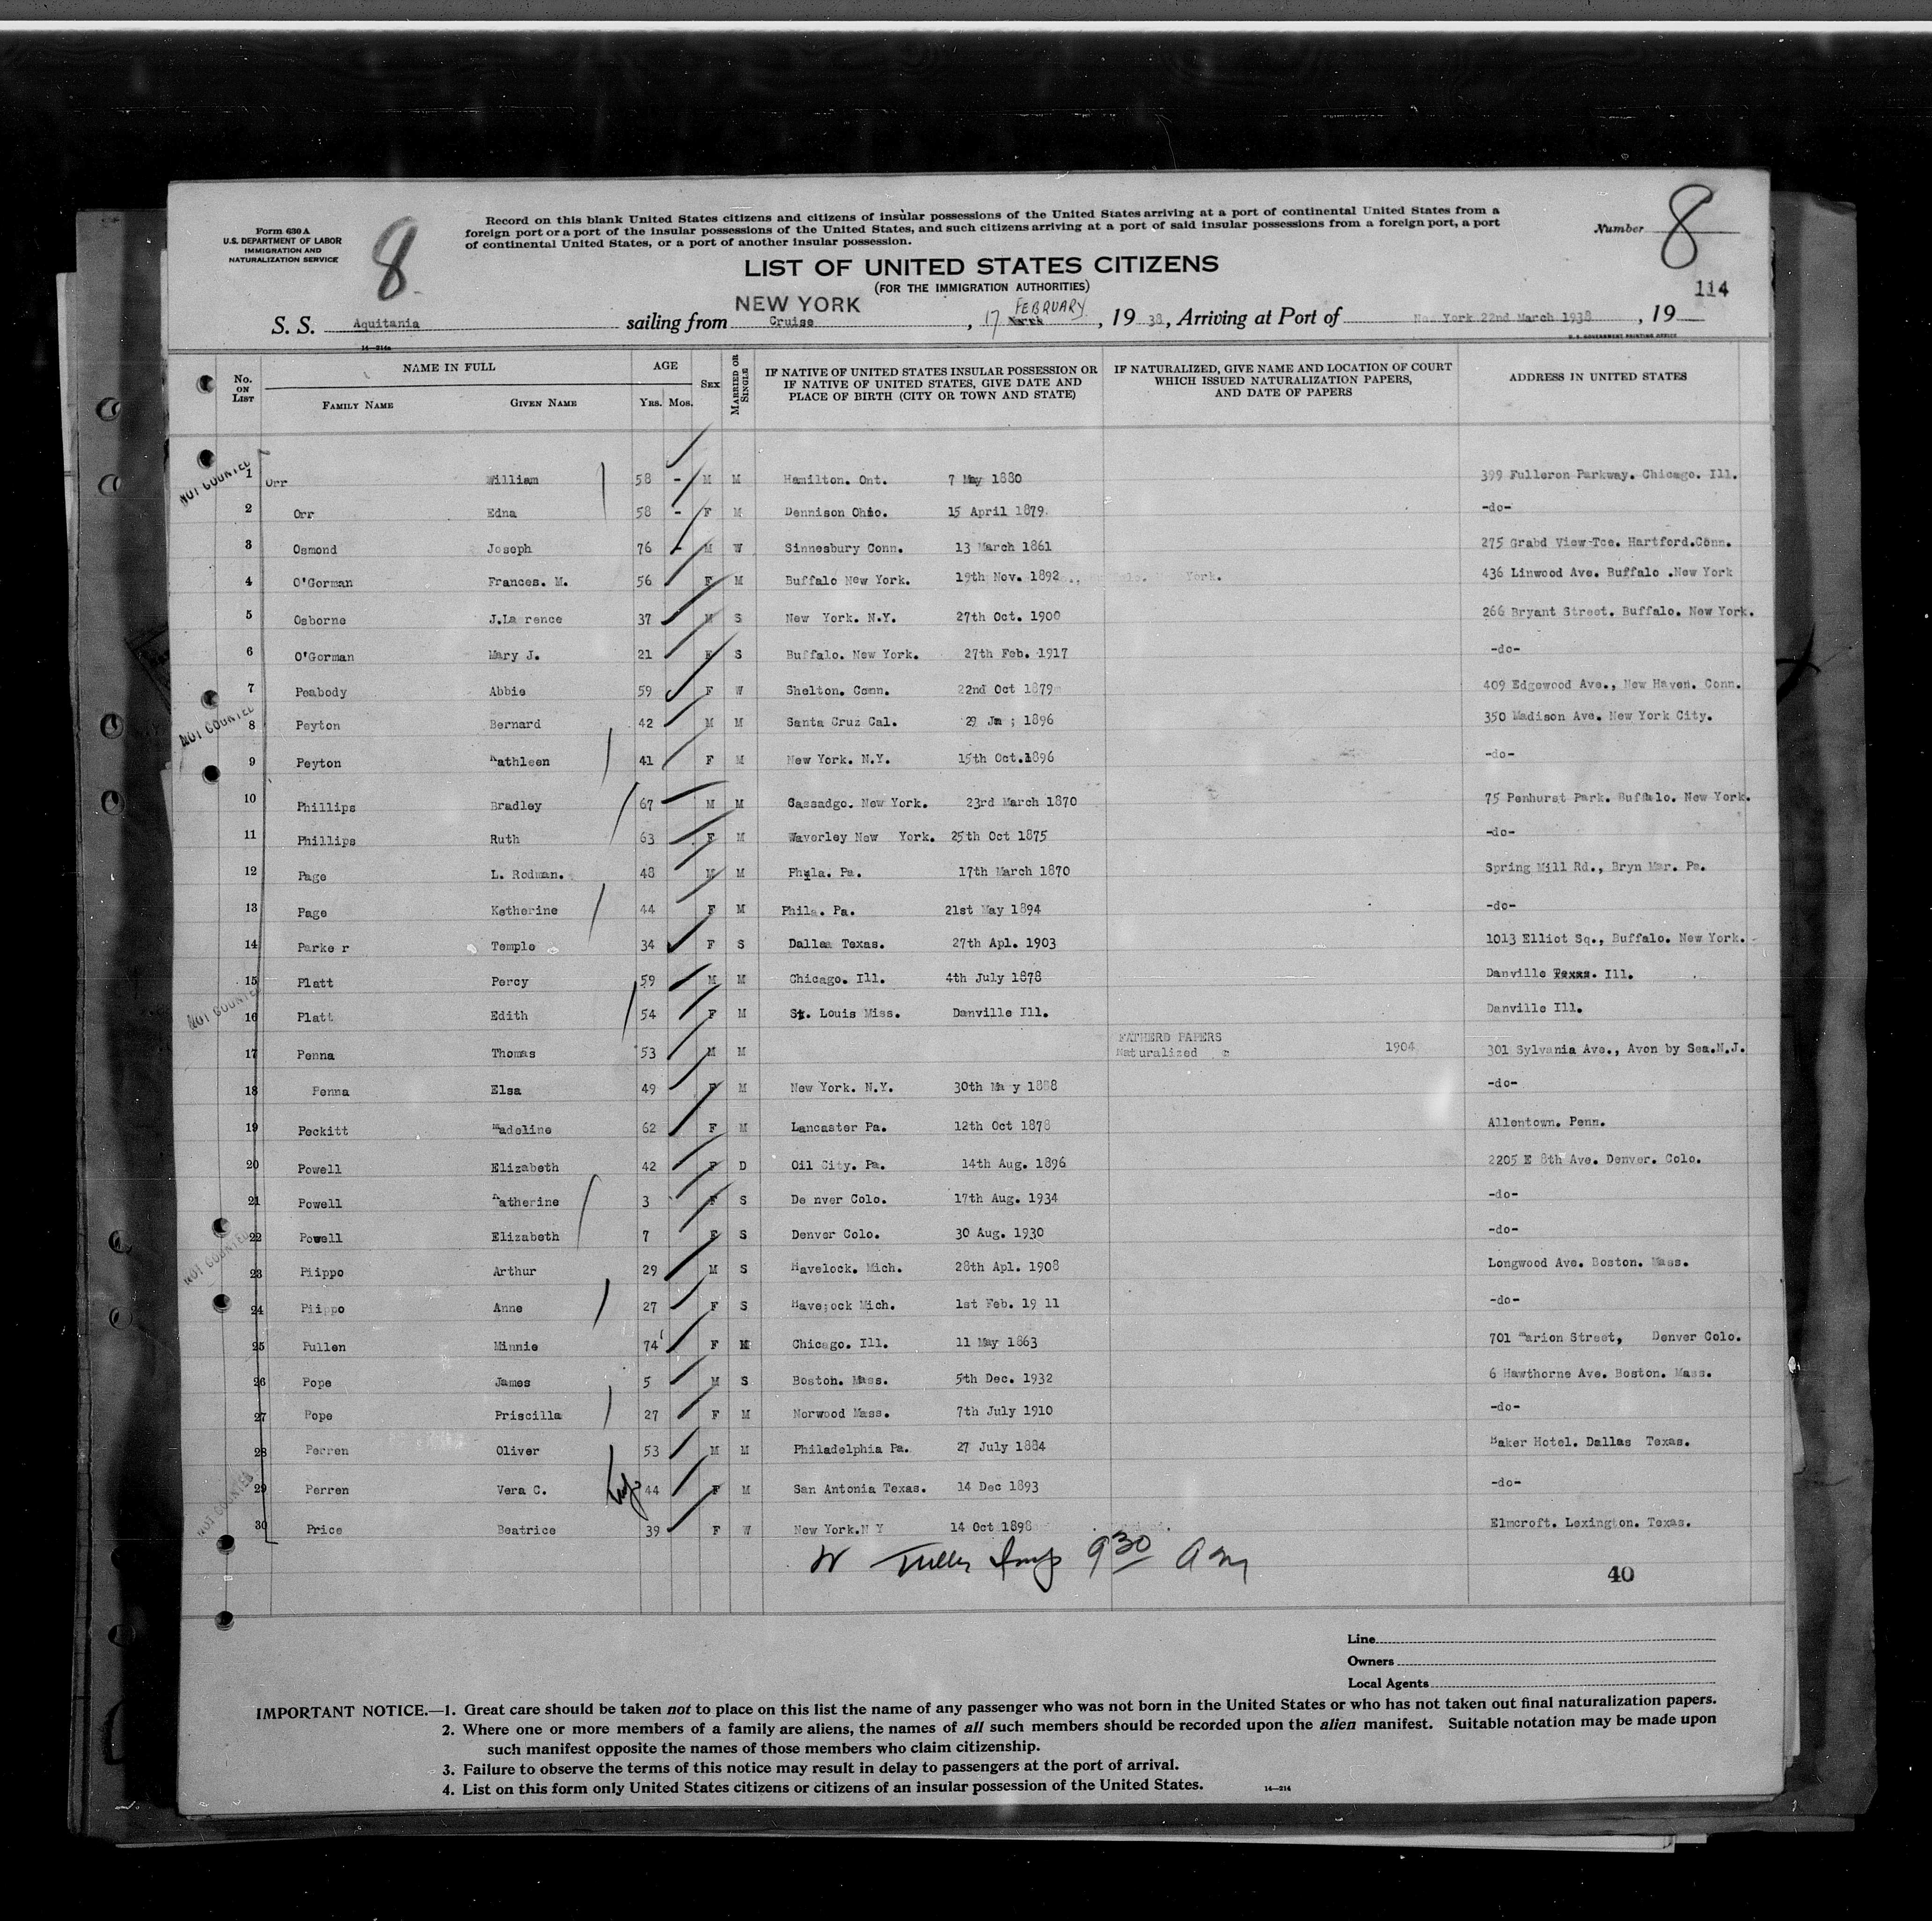 Form 630 A
U.S. DEPARTMENT OF LABOR
IMMIGRATION AND
NATURALIZATION SERVICE
8
Record on this blank United States citizens and citizens of insular possessions of the United States arriving at a port of continental United States from a
foreign port or a port of the insular possessions of the United States, and such citizens arriving at a port of said insular possessions from a foreign port, a port
of continental United States, or a port of another insular possession.
Number 8
114
LIST OF UNITED STATES CITIZENS
(FOR THE IMMIGRATION AUTHORITIES)
S. S. Aquitania sailing from NEW YORK Cruise, 17 FEBRUARY, 19 38, Arriving at Port of New York 22nd March 1938, 19
14—214a
U. S. GOVERNMENT PRINTING OFFICE
No. ON LIST NAME IN FULL FAMILY NAME GIVEN NAME AGE YRS. MOS. SEX MARRIED OR SINGLE IF NATIVE OF UNITED STATES INSULAR POSSESSION OR IF NATIVE OF UNITED STATES, GIVE DATE AND PLACE OF BIRTH (CITY OR TOWN AND STATE) IF NATURALIZED, GIVE NAME AND LOCATION OF COURT WHICH ISSUED NATURALIZATION PAPERS, AND DATE OF PAPERS ADDRESS IN UNITED STATES
NOT COUNTED
1 Orr William 58 - M M Hamilton. Ont. 7 May 1880 399 Fulleron Parkway. Chicago. Ill.
2 Orr Edna 58 - F M Dennison Ohio. 15 April 1879. -do-
3 Osmond Joseph 76 - M W Sinnesbury Conn. 13 March 1861 275 Grabd View-Tce. Hartford.Conn.
4 O'Gorman Frances. M. 56 F M Buffalo New York. 19th Nov. 1892 York. 436 Linwood Ave. Buffalo .New York
5 Osborne J.La rence 37 M S New York. N.Y. 27th Oct. 1900 266 Bryant Street. Buffalo. New York.
6 O'Gorman Mary J. 21 F S Buffalo. New York. 27th Feb. 1917 -do-
7 Peabody Abbie 59 F W Shelton. Conn. 22nd Oct 1879 409 Edgewood Ave., New Haven. Conn.
NOT COUNTED
8 Peyton Bernard 42 M M Santa Cruz Cal. 29 Jan ; 1896 350 Madison Ave. New York City.
9 Peyton Kathleen 41 F M New York. N.Y. 15th Oct.1896 -do-
10 Phillips Bradley 67 M M Cassadgo. New York. 23rd March 1870 75 Penhurst Park. Buffalo. New York.
11 Phillips Ruth 63 F M Waverley New York. 25th Oct 1875 -do-
12 Page L. Rodman. 48 M M Phila. Pa. 17th March 1870 Spring Mill Rd., Bryn Mar. Pa.
13 Page Ketherine 44 F M Phila. Pa. 21st May 1894 -do-
14 Parke r Temple 34 F S Dallas Texas. 27th Apl. 1903 1013 Elliot Sq., Buffalo. New York.
15 Platt Percy 59 M M Chicago. Ill. 4th July 1878 Danville Texas. Ill.
NOT COUNTED
16 Platt Edith 54 F M St. Louis Miss. Danville Ill. Danville Ill.
17 Penna Thomas 53 M M FATHERD PAPERS Naturalized 1904 301 Sylvania Ave., Avon by Sea.N.J.
18 Penna Elsa 49 F M New York. N.Y. 30th Ma y 1888 -do-
19 Peckitt Madeline 62 F M Lancaster Pa. 12th Oct 1878 Allentown. Penn.
20 Powell Elizabeth 42 F D Oil City. Pa. 14th Aug. 1896 2205 E 8th Ave. Denver. Colo.
21 Powell Katherine 3 F S De nver Colo. 17th Aug. 1934 -do-
22 Powell Elizabeth 7 F S Denver Colo. 30 Aug. 1930 -do-
NOT COUNTED
23 Piippo Arthur 29 M S Havelock. Mich. 28th Apl. 1908 Longwood Ave. Boston. Mass.
24 Piippo Anne 27 F S Have;ock Mich. 1st Feb. 19 11 -do-
25 Pullen Minnie 74 F M Chicago. Ill. 11 May 1863 701 Marion Street, Denver Colo.
26 Pope James 5 M S Boston. Mass. 5th Dec. 1932 6 Hawthorne Ave. Boston. Mass.
27 Pope Priscilla 27 F M Norwood Mass. 7th July 1910 -do-
28 Perren Oliver 53 M M Philadelphia Pa. 27 July 1884 Baker Hotel. Dallas Texas.
29 Perren Vera C. 44 F M San Antonia Texas. 14 Dec 1893 -do-
NOT COUNTED
30 Price Beatrice 39 F W New York.N Y 14 Oct 1898 Elmcroft. Lexington. Texas.
930 am
40
Line
Owners
Local Agents
IMPORTANT NOTICE.—1. Great care should be taken not to place on this list the name of any passenger who was not born in the United States or who has not taken out final naturalization papers.
2. Where one or more members of a family are aliens, the names of all such members should be recorded upon the alien manifest. Suitable notation may be made upon
such manifest opposite the names of those members who claim citizenship.
3. Failure to observe the terms of this notice may result in delay to passengers at the port of arrival.
4. List on this form only United States citizens or citizens of an insular possession of the United States.
14—214